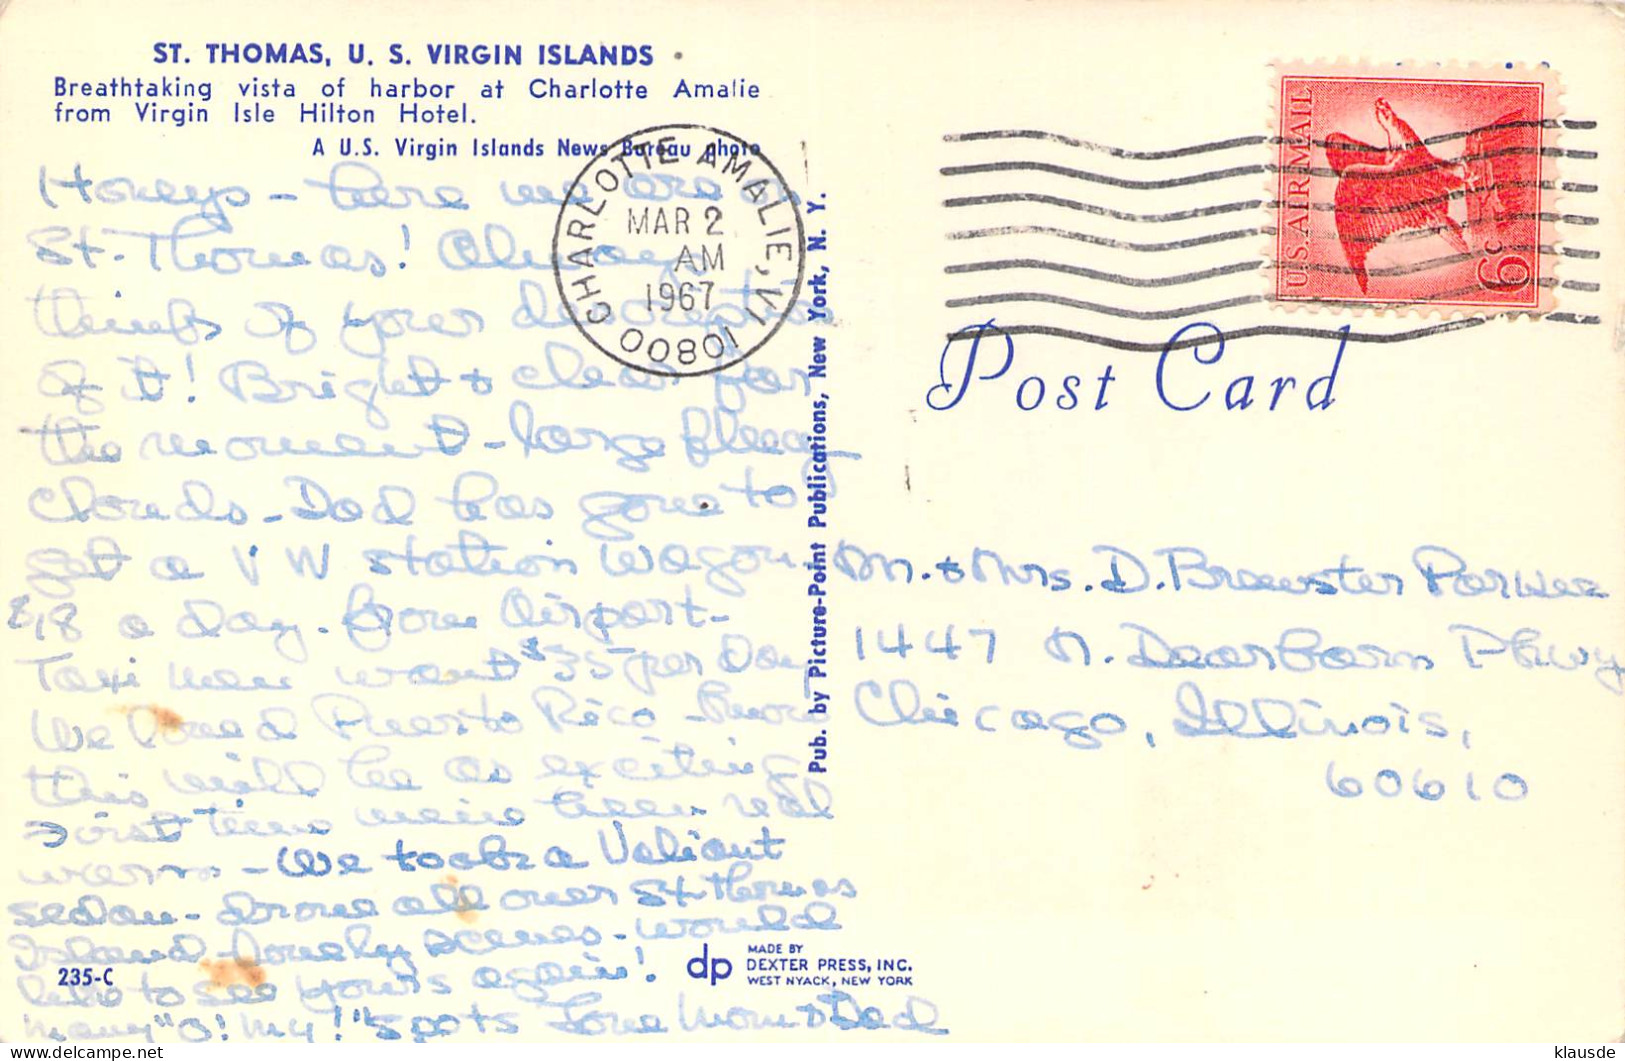 ST. THOMAS, U. S. VIRGIN ISLANDS
Breathtaking vista of harbor at Charlotte Amalie
from Virgin Isle Hilton Hotel.
A U.S. Virgin Islands News Bureau photo
Honeys - here we are
St. Thomas! Always
thinks of your description
of it! Bright & clear for
the moment - large fleecy
clouds - Dad has gone to
get a VW station wagon
$18 a day. from Airport -
Taxi men want $35 per Day
We loved Puerto Rico -
this will be as exciting
First time we've been real
warm - We took a Valiant
sedan - drove all over St. Thomas
Island - lovely scenes - would
like to see yours again!
many "O! My!" spots Love Mom & Dad
235-C
CHARLOTTE AMALIE, VI 00801
MAR 2
AM
1967
Pub. by Picture-Point Publications, New York, N. Y.
U.S. AIRMAIL
6c
Post Card
Mr. & Mrs. D. Brewster Parker
1447 N. Dearborn Pkwy
Chicago, Illinois,
60610
dp
MADE BY
DEXTER PRESS, INC.
WEST NYACK, NEW YORK
klausde